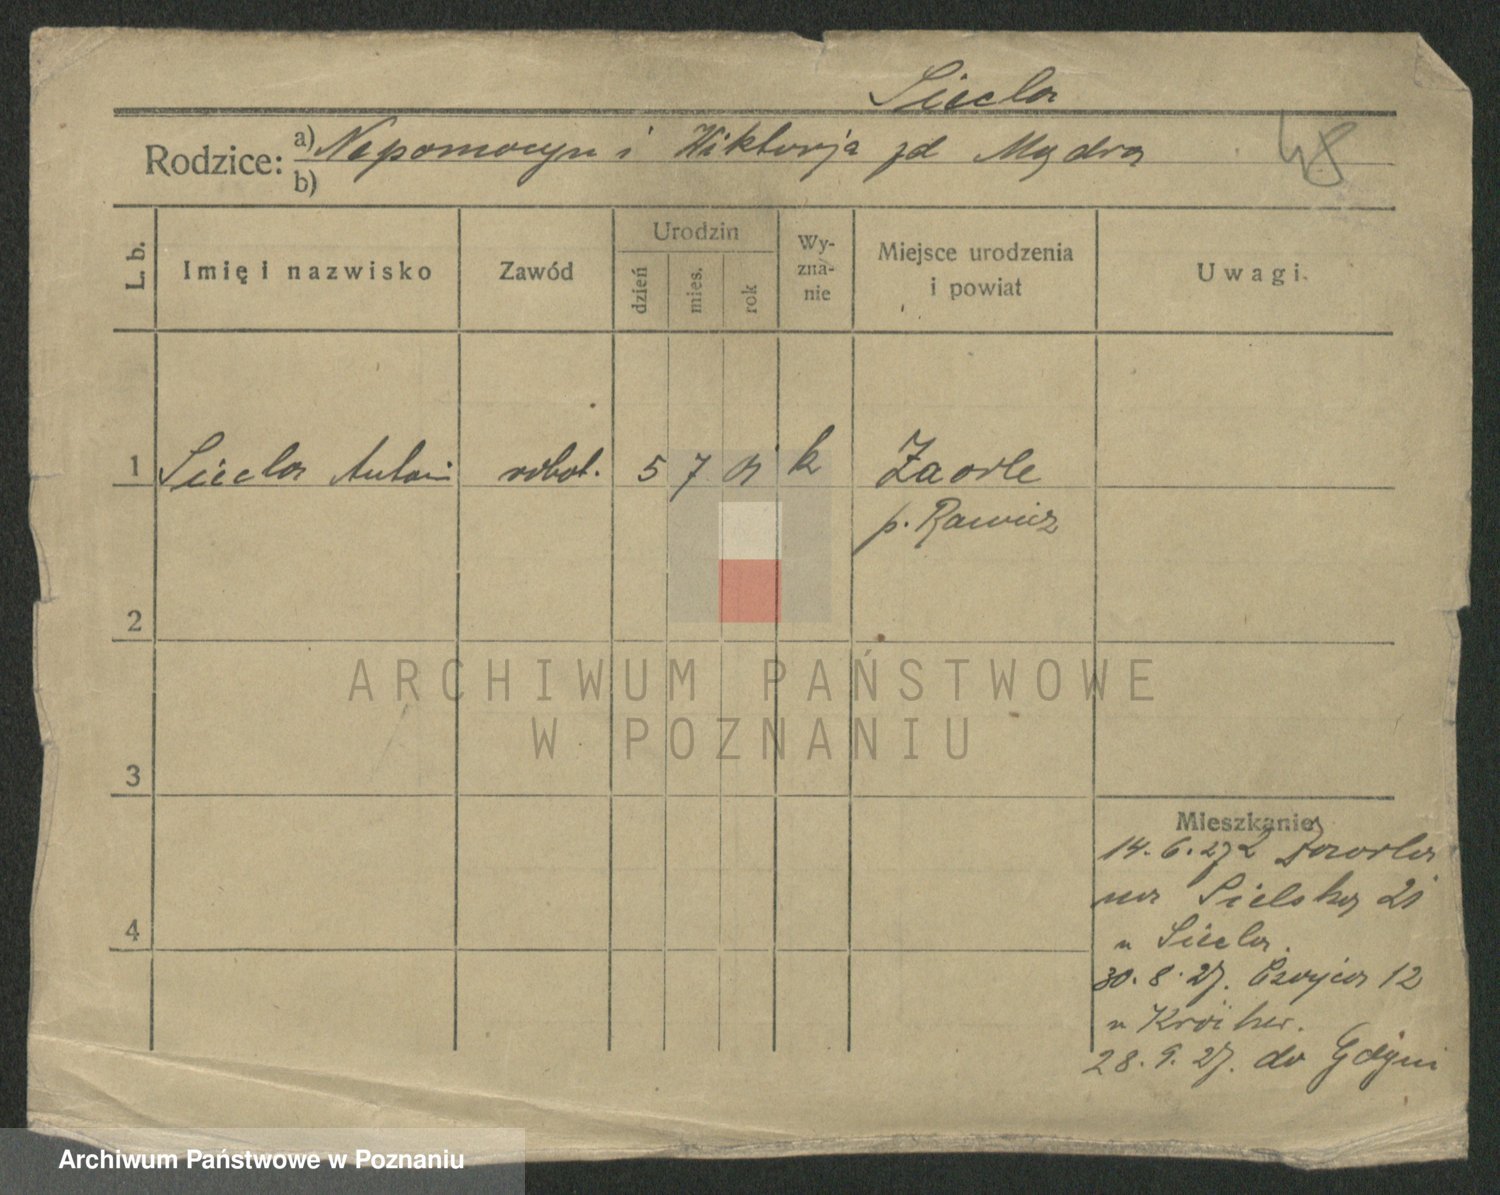 Siecla
Rodzice: a) Nepomocyn i Wiktorja zd Mądra
b)
48
L. b.
Imię i nazwisko
Zawód
Urodzin
dzień
mies.
rok
Wy-
zna-
nie
Miejsce urodzenia
i powiat
Uwagi.
1 Siecla Antoni robot. 5 7 01 k Zaorle
p. Rawicz
2
3
4
Mieszkanie
14.6.27 z Zaorla
na Sielską 21
u Siecla.
30.8.27. Czajcza 12
u
28.9.27. do Gdyni
ARCHIWUM PAŃSTWOWE
W POZNANIU
Archiwum Państwowe w Poznaniu